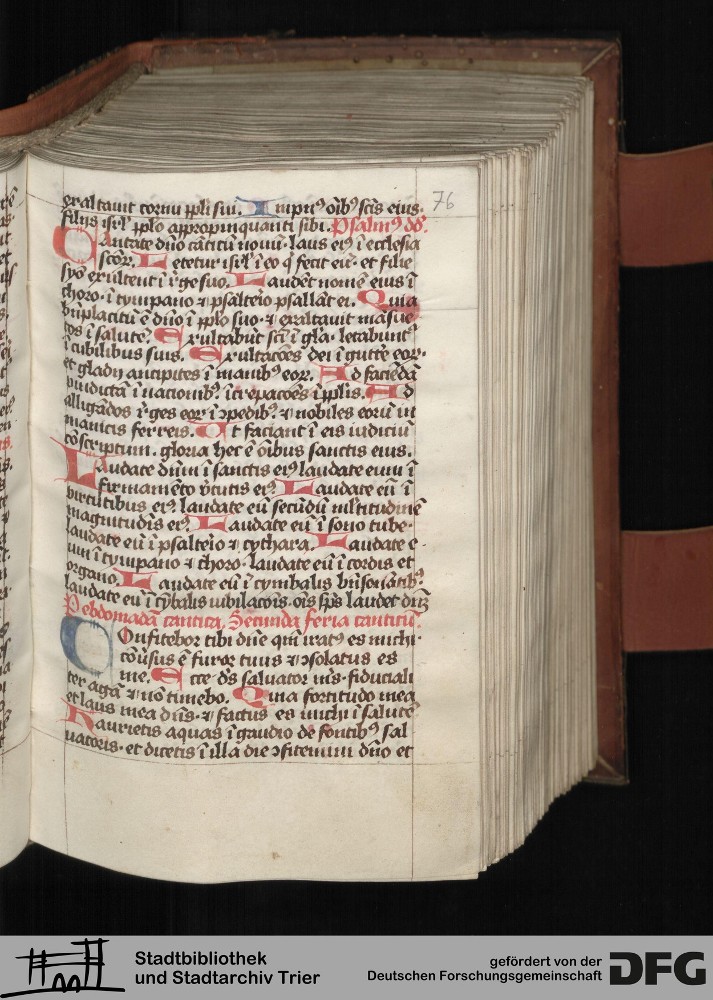 exaltauit cornu ppli sui. Impn⁹ oīb⁹ scīs eius.
filijs isrl̄ pplo appropinquanti sibi. Psalm⁹ dd.
Cantate dn̄o cāticū nouū. laus ei⁹ ī ecclesia
scōr. Letetur isrl̄ ī eo q̇ fecit eū. et filie
syō exultent ī rege suo. Laudēt nomē eius ī
choro. ī tympano ⁊ psalteīo psallāt ei. Quia
bn̄placitū ē dn̄o ī pplo suo. ⁊ exaltauit māsue
tos ī salutē. Exultabūt scī ī gl̄a. letabunt᷑
ī cubilibus suis. Exultacōes dei ī gutte eor.
et gladij ancipites ī manib⁹ eor. Ad faciēdā
vindictā ī nacionib⁹. īcrepacōes ī pplis. Ad
alligādos reges eor ī ꝯpedib⁹. ⁊ nobiles eorū in
manicis ferreis. Ut faciant ī eis iudiciū
cōscriptum. gloria hec ē oībus sanctis eius.
Laudate dn̄m ī sanctis ei⁹ laudate eum ī
firmamēto v̄tutis ei⁹. Laudate eū ī
virtutibus ei⁹. laudate eū secūdū ml̄titudinē
magnitudīs ei⁹. Laudate eū ī sono tube.
laudate eū ī psalteīo ⁊ cythara. Laudate e
um ī tympano ⁊ choro. laudate eū ī cordis et
organo. Laudate eū ī cymbalis bn̄sonātib⁹.
laudate eū ī cybalis iubilacōis. oīs sp̄s laudet dn̄m
Pebdomadā cantica. Secunda feria canticū.
Confitebor tibi dn̄e qm̄ irat⁹ es michi.
cōūsus ē furor tuus ⁊ ꝯsolatus es
me. Ecce d̄s saluator m̄s. fiduciali
ter agā ⁊ nō timebo. Quia fortitudo mea
et laus mea dn̄s. ⁊ factus es michi ī salutē
Haurietis aquas ī gaudio de fontib⁹ sal
uatoris. et dicetis ī illa die ꝯfitemini dn̄o et
76
Stadtbibliothek
und Stadtarchiv Trier
gefördert von der
Deutschen Forschungsgemeinschaft
DFG